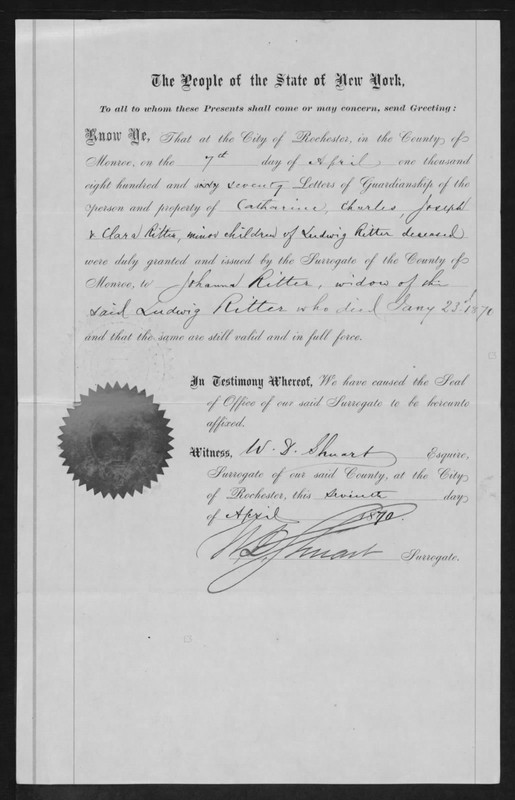 The People of the State of New York,
To all to whom these Presents shall come or may concern, send Greeting:
Know Ye, That at the City of Rochester, in the County of
Monroe, on the 7th day of April one thousand
eight hundred and sixty seventy Letters of Guardianship of the
person and property of Catharine, Charles, Joseph
& Clara Ritter, minor children of Ludwig Ritter deceased
were duly granted and issued by the Surrogate of the County of
Monroe, to Johanna Ritter, widow of the
said Ludwig Ritter who died Jany 23d 1870
and that the same are still valid and in full force.
In Testimony Whereof, We have caused the Seal
of Office of our said Surrogate to be hereunto
affixed.
Witness, W. D. Shuart Esquire,
Surrogate of our said County, at the City
of Rochester, this seventh day
of April 1870.
W. D. Shuart Surrogate.